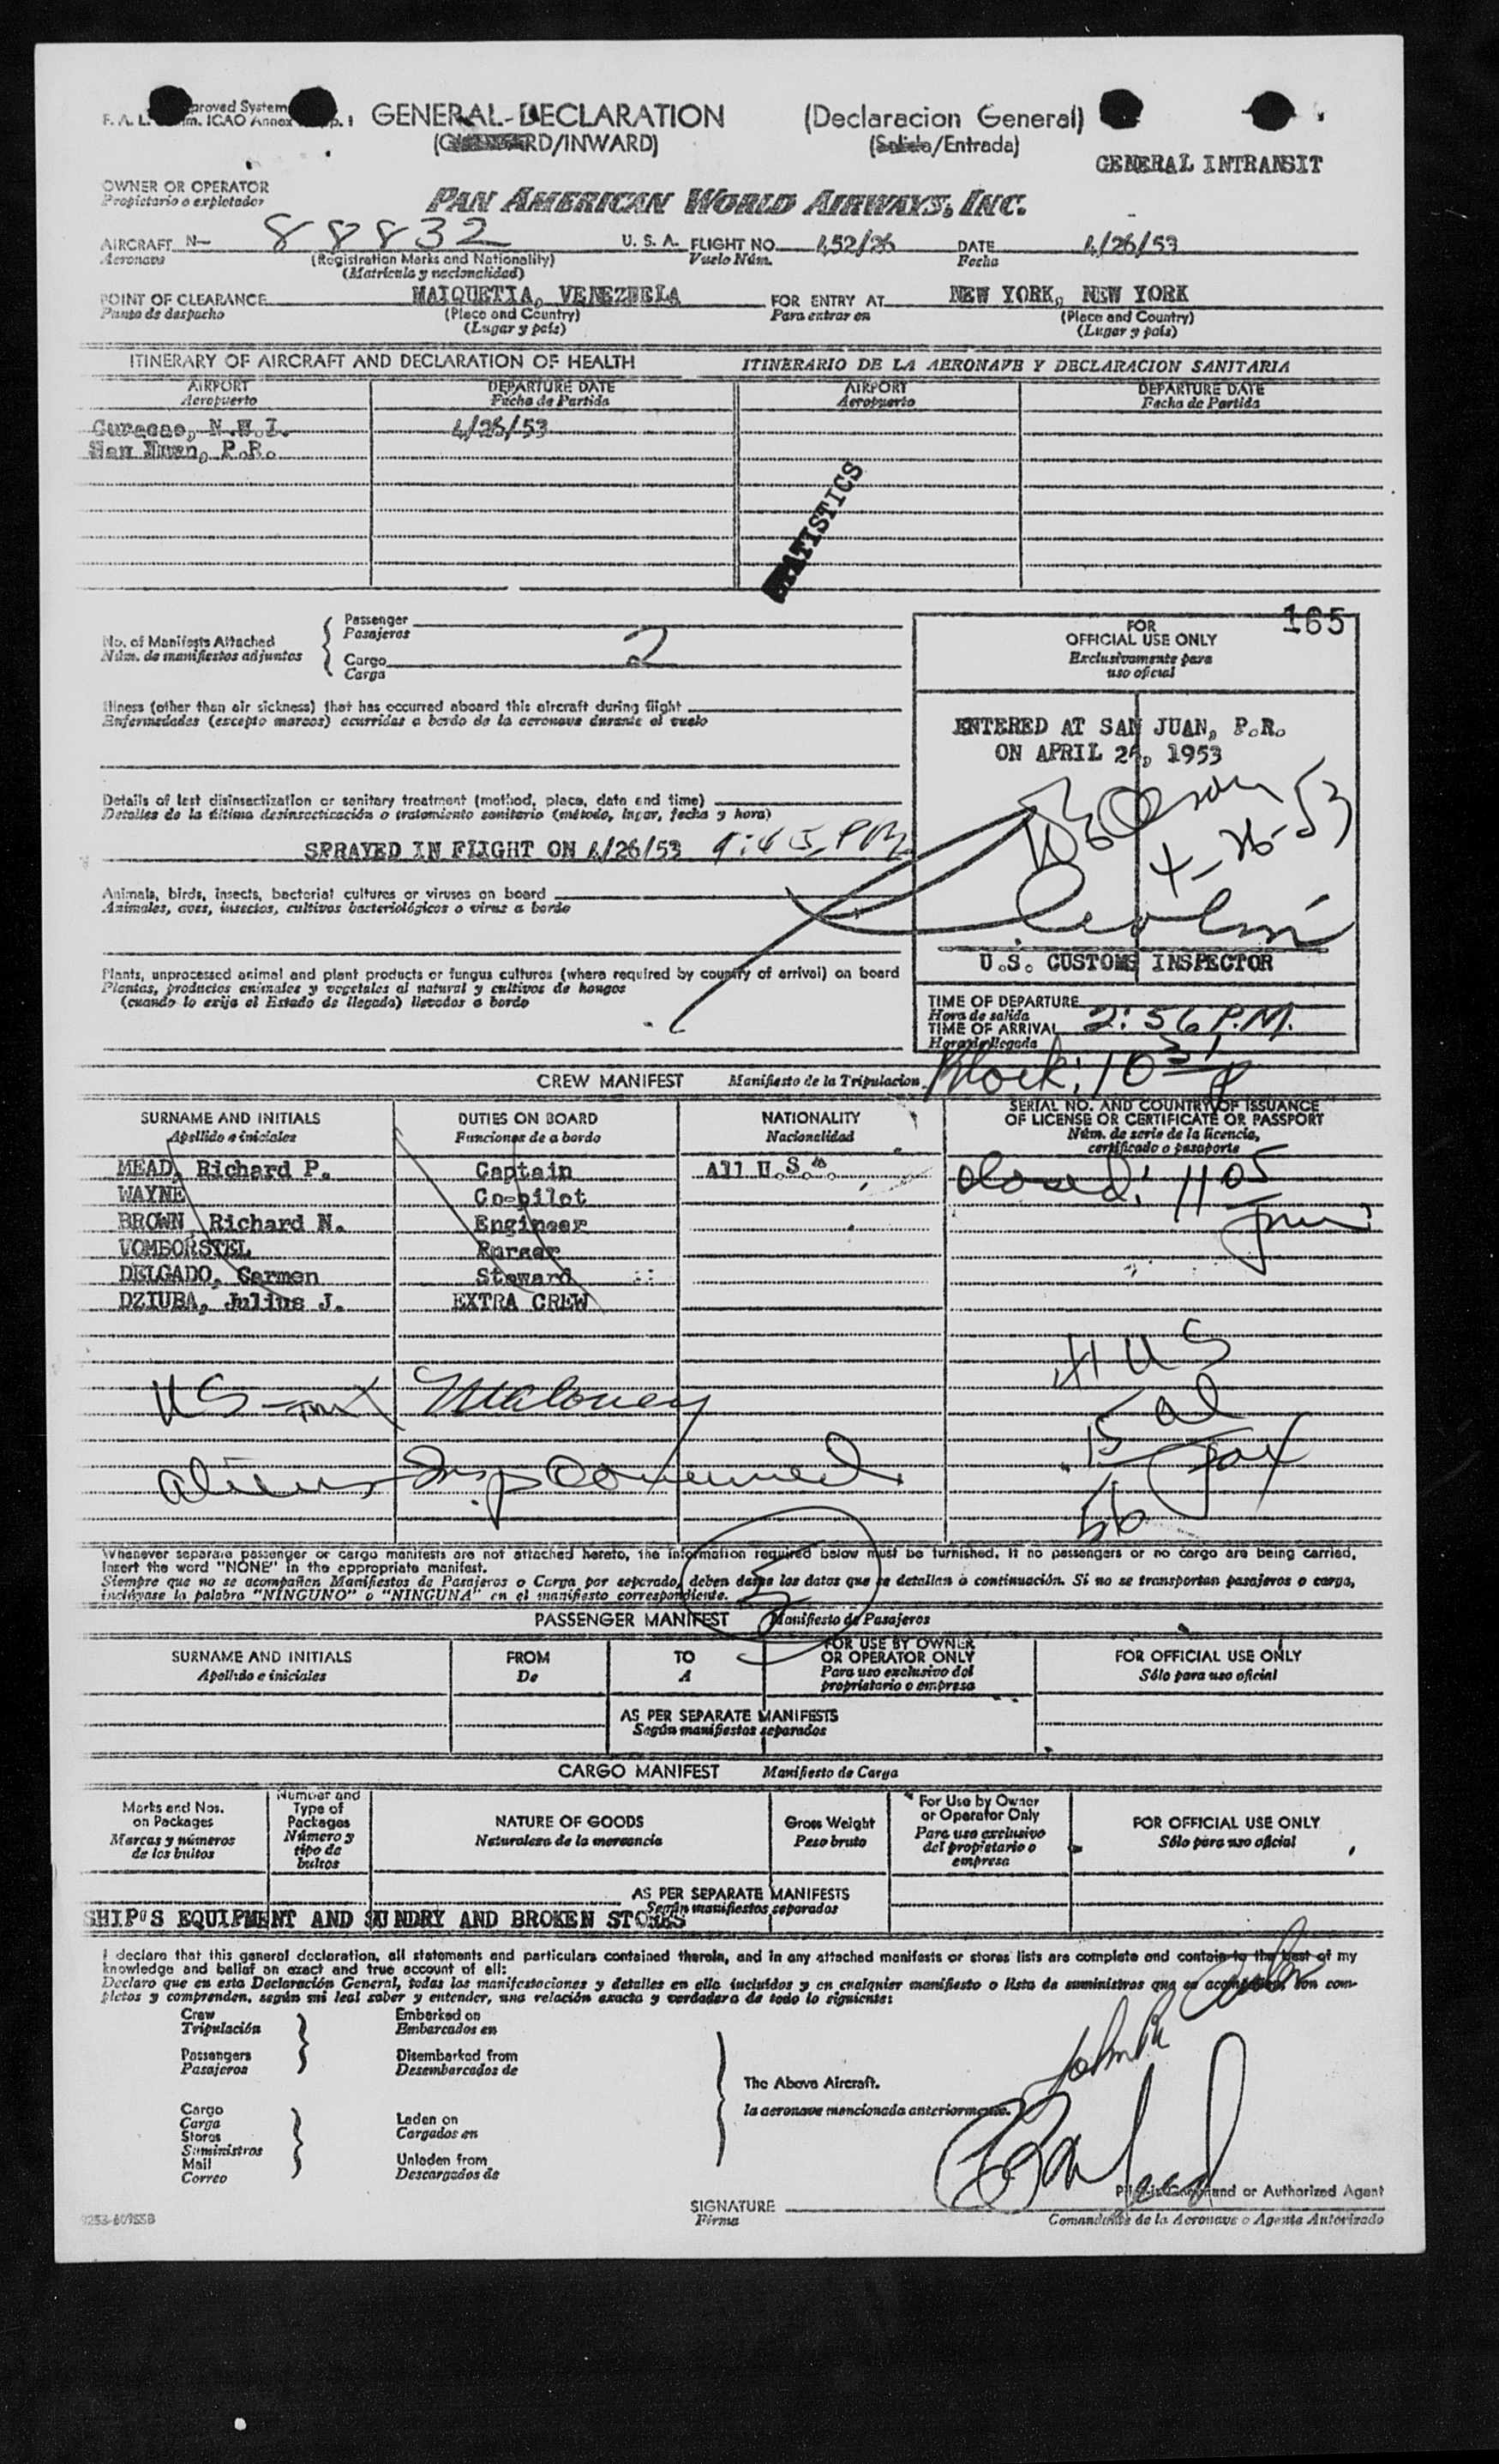 F. A. L. proved System
m. ICAO Annex p. 1
GENERAL DECLARATION (Declaracion General)
RD/INWARD) (Salida/Entrada)
GENERAL INTRANSIT
OWNER OR OPERATOR
Propietario o explotador
PAN AMERICAN WORLD AIRWAYS, INC.
AIRCRAFT N- 88832 U. S. A. FLIGHT NO. 452/26 DATE 4/26/53
Aeronave (Registration Marks and Nationality) Vuelo Núm. Fecha
(Matrícula y nacionalidad)
POINT OF CLEARANCE MAIQUETIA, VENEZUELA FOR ENTRY AT NEW YORK, NEW YORK
Punto de despacho (Place and Country) Para entrar en (Place and Country)
(Lugar y país) (Lugar y país)
ITINERARY OF AIRCRAFT AND DECLARATION OF HEALTH ITINERARIO DE LA AERONAVE Y DECLARACION SANITARIA
AIRPORT DEPARTURE DATE AIRPORT DEPARTURE DATE
Aeropuerto Fecha de Partida Aeropuerto Fecha de Partida
Curacao, N.W.I. 4/26/53
San Juan, P.R.
STATISTICS
165
No. of Manifests Attached
Núm. de manifiestos adjuntos
Passenger
Pasajeros
Cargo 2
Carga
FOR
OFFICIAL USE ONLY
Exclusivamente para
uso oficial
Illness (other than air sickness) that has occurred aboard this aircraft during flight
Enfermedades (excepto mareos) ocurridas a bordo de la aeronave durante el vuelo
ENTERED AT SAN JUAN, P.R.
ON APRIL 26, 1953
4-26-53
U.S. CUSTOMS INSPECTOR
Details of last disinsectization or sanitary treatment (method, place, date and time)
Detalles de la última desinsectización o tratamiento sanitario (método, lugar, fecha y hora)
SPRAYED IN FLIGHT ON 4/26/53 9:45 PM
Animals, birds, insects, bacterial cultures or viruses on board
Animales, aves, insectos, cultivos bacteriológicos o virus a bordo
Plants, unprocessed animal and plant products or fungus cultures (where required by country of arrival) on board
Plantas, productos animales y vegetales al natural y cultivos de hongos
(cuando lo exija el Estado de llegada) llevados a bordo
TIME OF DEPARTURE
Hora de salida
TIME OF ARRIVAL 2:56 P.M.
Hora de llegada
Block: 10 31 p
CREW MANIFEST Manifiesto de la Tripulacion
SURNAME AND INITIALS DUTIES ON BOARD NATIONALITY SERIAL NO. AND COUNTRY OF ISSUANCE
OF LICENSE OR CERTIFICATE OR PASSPORT
Apellido e iniciales Funciones de a bordo Nacionalidad Núm. de serie de la licencia,
certificado o pasaporte
MEAD, Richard P. Captain All U.S.
WAYNE Co-pilot
BROWN Richard N. Engineer
VOMBORSTEL Purser
DELGADO, Carmen Steward
DZIUBA, Julius J. EXTRA CREW
closed: 11 05
41 US
15 al
56
US Maloney
aliens Insp
5
Whenever separate passenger or cargo manifests are not attached hereto, the information required below must be furnished. If no passengers or no cargo are being carried,
insert the word "NONE" in the appropriate manifest.
Siempre que no se acompañen Manifiestos de Pasajeros o Carga por separado, deben darse los datos que se detallan a continuación. Si no se transportan pasajeros o carga,
inclúyase la palabra "NINGUNO" o "NINGUNA" en el manifiesto correspondiente.
PASSENGER MANIFEST Manifiesto de Pasajeros
SURNAME AND INITIALS FROM TO FOR USE BY OWNER
OR OPERATOR ONLY FOR OFFICIAL USE ONLY
Apellido e iniciales De A Para uso exclusivo del
propietario o empresa Sólo para uso oficial
AS PER SEPARATE MANIFESTS
Según manifiestos separados
CARGO MANIFEST Manifiesto de Carga
Marks and Nos.
on Packages
Marcas y números
de los bultos
Number and
Type of
Packages
Número y
tipo de
bultos
NATURE OF GOODS
Naturaleza de la mercancía
Gross Weight
Peso bruto
For Use by Owner
or Operator Only
Para uso exclusivo
del propietario o
empresa
FOR OFFICIAL USE ONLY
Sólo para uso oficial
AS PER SEPARATE MANIFESTS
Según manifiestos separados
SHIP'S EQUIPMENT AND SUNDRY AND BROKEN STORES
I declare that this general declaration, all statements and particulars contained therein, and in any attached manifests or stores lists are complete and contain to the best of my
knowledge and belief an exact and true account of all:
Declaro que en esta Declaración General, todas las manifestaciones y detalles en ella incluídos y en cualquier manifiesto o lista de suministros que se acompañan, son com-
pletos y comprenden, según mi leal saber y entender, una relación exacta y verdadera de todo lo siguiente:
Crew
Tripulación
Passengers
Pasajeros
Embarked on
Embarcados en
Disembarked from
Desembarcados de
Cargo
Carga
Stores
Suministros
Mail
Correo
Laden on
Cargados en
Unladen from
Descargados de
The Above Aircraft.
la aeronave mencionada anteriormente.
SIGNATURE Pilot in Command or Authorized Agent
Firma Comandante de la Aeronave o Agente Autorizado